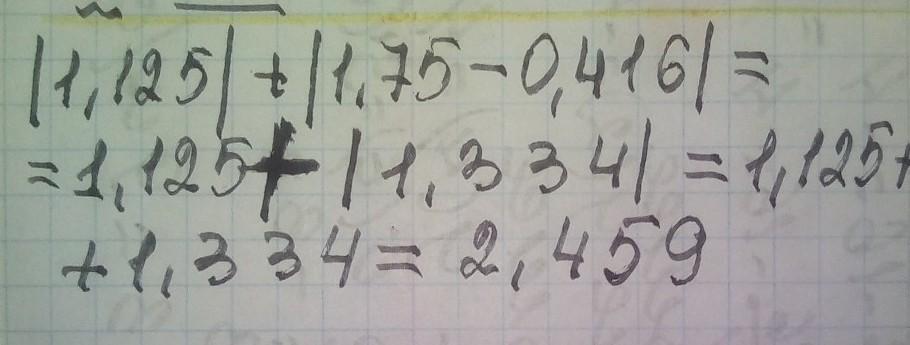 |1,125| + |1,75 - 0,416| =
= 1,125 + |1,334| = 1,125 +
+ 1,334 = 2,459